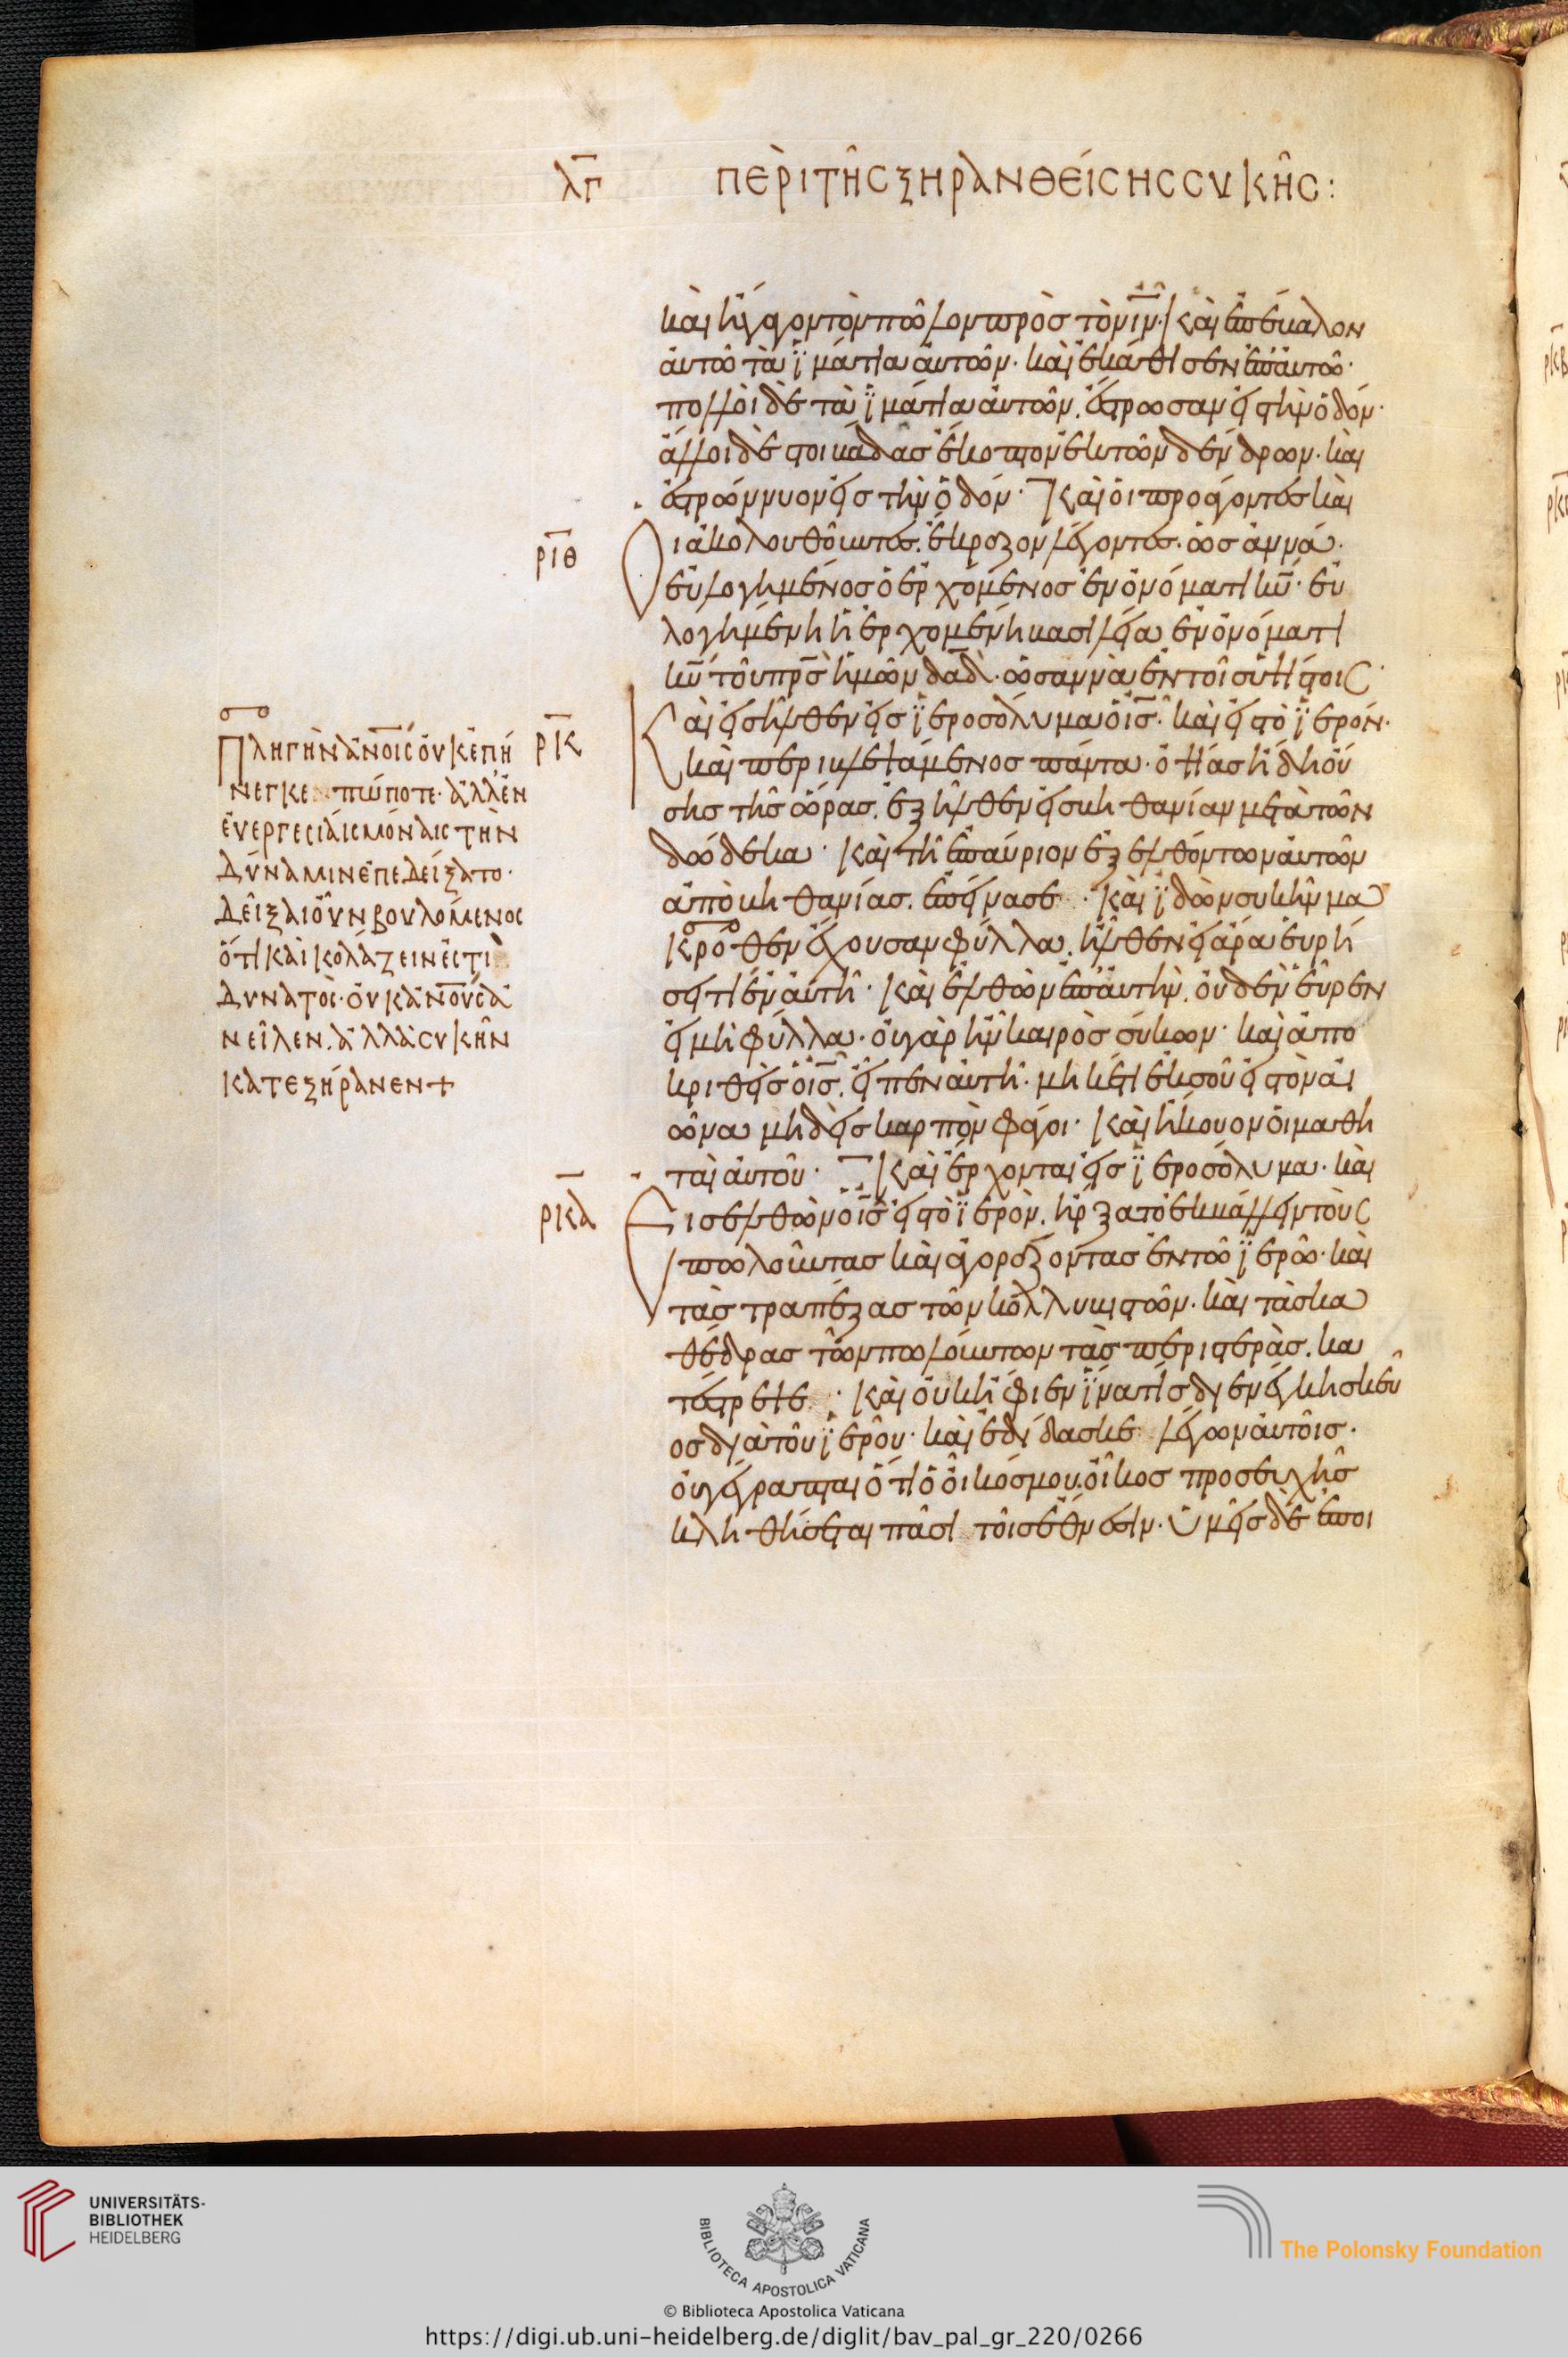 λγ ΠΕΡὶ ΤῆC ΞΗΡΑΝΘΕΊCΗC CΥΚῆC:
καὶ ἤγαγον τὸν πῶλον πρὸσ τὸν ιν· καὶ ἐπέβαλον
αὐτῶ τὰ ϊμάτια αὐτῶν· καὶ ἐκάθισεν ἐπ' αὐτῶ·
πολλοὶ δὲ τὰ ϊμάτια αὐτῶν, ἔστρωσαν εἰς τὴν ὁδόν·
ἄλλοι δὲ στοιβάδασ ἔκοπτον ἐκ τῶν δένδρων· καὶ
ἐστρώννυον εἰσ τὴν ὁδόν· Καὶ οἱ προάγοντεσ καὶ
ριθ
Οἱ ἀκολουθοῦντεσ, ἔκραζον λέγοντεσ· ὡσαννά·
εὐλογημένοσ ὁ ἐρχόμενοσ ἐν ὀνόματι κυ· εὐ
λογημένη ἡ ἐρχομένη βασιλεία ἐν ὀνόματι
κυ τοῦ πρσ ἡμῶν δαδ· ὡσαννὰ ἐν τοῖσ ὑψίστοις·
ρκ
Καὶ εἰσῆλθεν εἰσ ϊεροσόλυμα ὁ ισ· καὶ εἰσ τὸ ϊερόν·
καὶ περιβλεψάμενοσ πάντα· ὀψίασ ἤδη οὔ
σησ τῆσ ὥρασ, ἐξῆλθεν εἰσ βηθανίαν μετὰ τῶν
δώδεκα· Καὶ τῆ ἐπαύριον ἐξελθόντων αὐτῶν
ἀπὸ βηθανίασ, ἐπείνασε· Καὶ ϊδὼν συκῆν μα
κρόθεν ἔχουσαν φύλλα, ἦλθεν εἰ ἄρα εὑρή
σει τι ἐν αὐτῆ· Καὶ ἐλθὼν ἐπ' αὐτὴν, οὐδὲν εὗρεν
εἰ μὴ φύλλα· οὐ γὰρ ἦν καιρὸσ σύκων· καὶ ἀπο
κριθεὶσ ὁ ισ, εἶπεν αὐτῆ· μηκέτι ἐκ σοῦ εἰσ τὸν αἰ
ῶνα μηδεὶσ καρπὸν φάγοι· Καὶ ἤκουον οἱ μαθη
ταὶ αὐτοῦ· Καὶ ἔρχονται εἰσ ϊεροσόλυμα· καὶ
ρκα
Εἰσελθὼν ὁ ισ εἰσ τὸ ϊερὸν, ἤρξατο ἐκβάλλειν τοὺς
πωλοῦντασ καὶ ἀγοράζοντασ ἐν τῶ ϊερῶ· καὶ
τὰσ τραπέζασ τῶν κολλυβιστῶν· καὶ τὰσ κα
θέδρασ τῶν πωλούντων τὰσ περιστερὰσ, κα
τέστρεψε· Καὶ οὐκ ἤφιεν ϊνα τίσ διενέγκη σκεῦ
οσ διὰ τοῦ ϊεροῦ· καὶ ἐδίδασκε λέγων αὐτοῖσ·
οὐ γέγραπται ὅτι ὁ οἶκόσ μου, οἶκοσ προσευχῆσ
κληθήσεται πᾶσι τοῖσ ἔθνεσιν· ὑμεῖσ δὲ ἐποι
ΠΛΗΓῊΝ ἈΝΟΙC ΟΥΚ ἘΠΉ
ΝΕΓΚΕ ΠΏΠΟΤΕ· ἈΛΛ' ἘΝ
ΕΥΕΡΓΕCΊΑΙC ΜΌΝΑΙC ΤῊΝ
ΔΎΝΑΜΙΝ ἘΠΕΔΕΊΞΑΤΟ·
ΔΕῖΞΑΙ ΟΥΝ ΒΟΥΛΌΜΕΝΟC
ὍΤΙ ΚΑῚ ΚΟΛΆΖΕΙΝ ἘCΤῚ
ΔΥΝΑΤΌC· ΟΥΚ ἈΝΟΥC Ἀ
ΝΕῖΛΕΝ, ἈΛΛᾺ CΥΚῆΝ
ΚΑΤΕΞΉΡΑΝΕΝ+
UNIVERSITÄTS-
BIBLIOTHEK
HEIDELBERG
BIBLIOTECA APOSTOLICA VATICANA
The Polonsky Foundation
© Biblioteca Apostolica Vaticana
https://digi.ub.uni-heidelberg.de/diglit/bav_pal_gr_220/0266